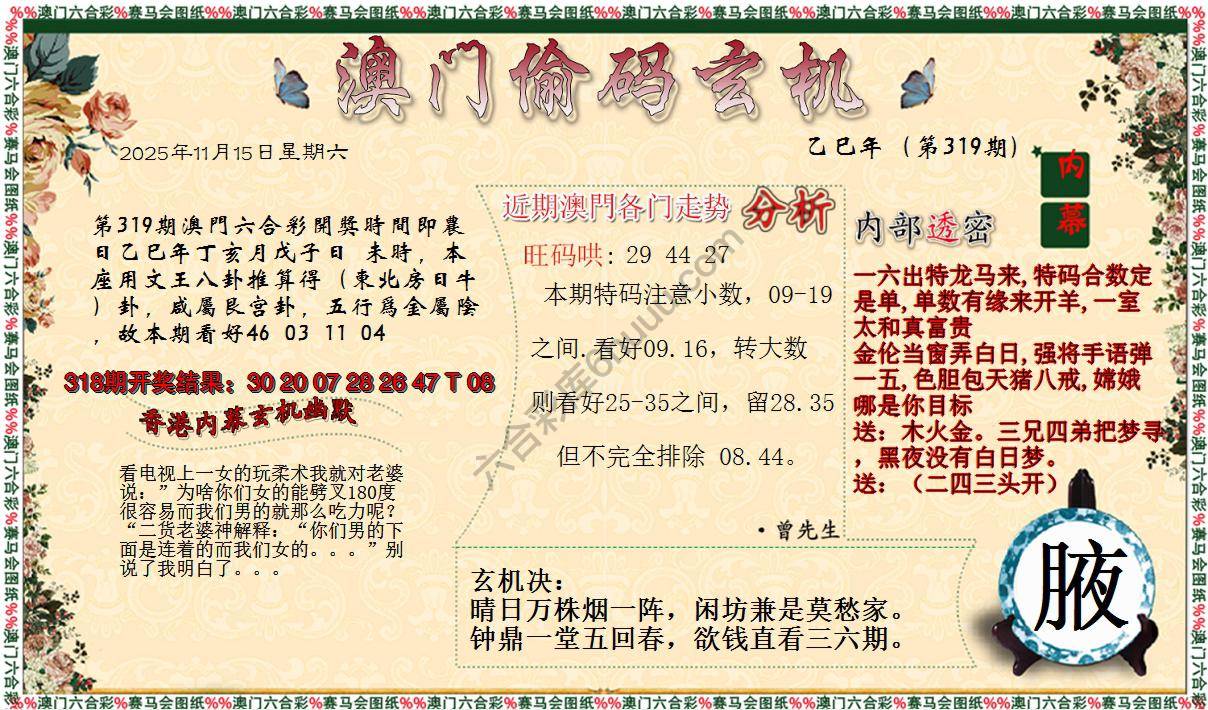 %%澳门六合彩%赛马会图纸%%澳门六合彩%赛马会图纸%%澳门六合彩%赛马会图纸%%澳门六合彩%赛马会图纸%%澳门六合彩%赛马会图纸%%澳门六合彩%赛马会图纸%%
澳门偷码玄机
2025年11月15日星期六
乙巳年（第319期）
内幕
第319期澳門六合彩開獎時間即農
日乙巳年丁亥月戊子日 未時，本
座用文王八卦推算得（東北房日牛
）卦，咸屬艮宫卦，五行爲金屬陰
，故本期看好46 03 11 04
318期开奖结果：30 20 07 28 26 47 T 08
香港内幕玄机幽默
看电视上一女的玩柔术我就对老婆
说：”为啥你们女的能劈叉180度
很容易而我们男的就那么吃力呢？
“二货老婆神解释：“你们男的下
面是连着的而我们女的。。。”别
说了我明白了。。。
近期澳門各门走势 分析
旺码哄: 29 44 27
本期特码注意小数，09-19
之间.看好09.16，转大数
则看好25-35之间，留28.35
但不完全排除 08.44。
·曾先生
内部透密
一六出特龙马来,特码合数定
是单,单数有缘来开羊,一室
太和真富贵
金伦当窗弄白日,强将手语弹
一五,色胆包天猪八戒,嫦娥
哪是你目标
送：木火金。三兄四弟把梦寻
，黑夜没有白日梦。
送：（二四三头开）
玄机决：
晴日万株烟一阵，闲坊兼是莫愁家。
钟鼎一堂五回春，欲钱直看三六期。
腋
%%澳门六合彩%赛马会图纸%%澳门六合彩%赛马会图纸%%澳门六合彩%赛马会图纸%%澳门六合彩%赛马会图纸%%澳门六合彩%赛马会图纸%%澳门六合彩%赛马会图纸%%